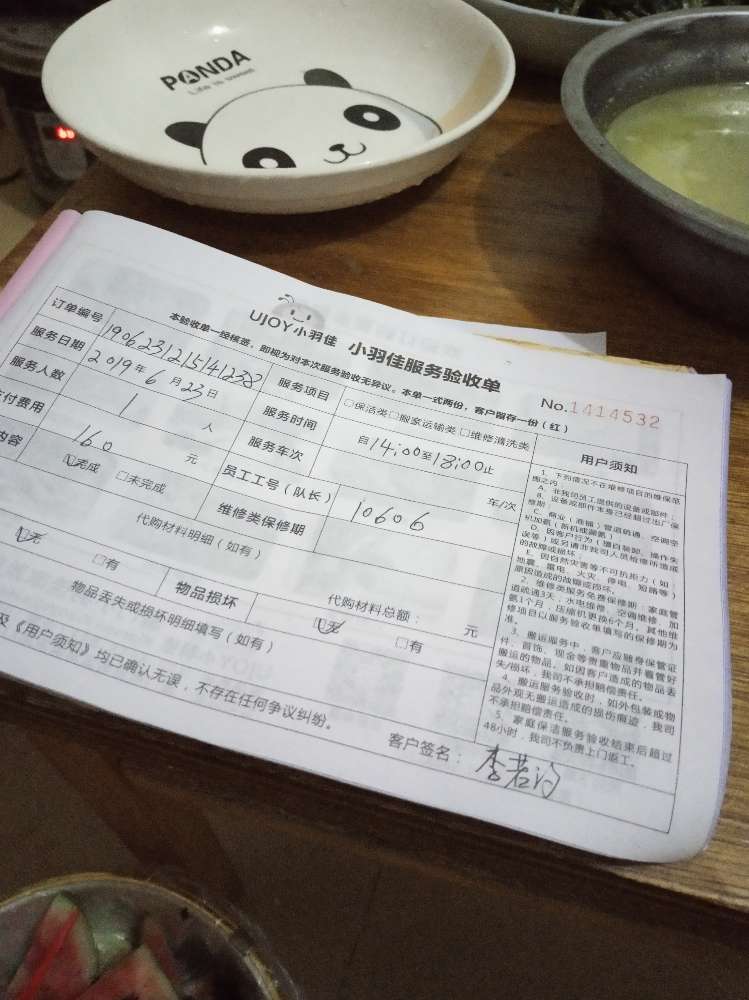 PANDA
Life is sweet
UJOY小羽佳 小羽佳服务验收单
本验收单一经核签，即视为对本次服务验收无异议。本单一式两份，客户留存一份（红）
No.1414532
订单编号 190623121541238 服务项目 □保洁类□搬家运输类□维修清洗类
服务日期 2019年6月23日 服务时间 自14:00至18:00止
服务人数 1 人 服务车次 车/次
付费用 160 元 员工工号（队长） 10606
内容 完成 □未完成 维修类保修期
代购材料明细（如有）
代购材料总额： 元
无 □有 物品损坏 无 □有
物品丢失或损坏明细填写（如有）
及《用户须知》均已确认无误，不存在任何争议纠纷。
客户签名：李若
用户须知
1、下列情况不在维修项目的维保范
围之内：
A、非我司员工提供的设备或部件；
B、设备或部件本身已经超过出厂保
修期；
C、商业（准幅）管道疏通、空调空
机加氨（新机或漏氨）
D、因客户行为（擅自装卸、操作失
误等）或另请非我司人员检修所造成
的故障或损坏；
E、因自然灾害等不可抗拒力（如：
地震、雷电、火灾、停电、短路等）
原因造成的故障或损坏。
2、维修类服务免费保修期：家庭管
道疏通3天；水电维修、空调维修、加
氨1个月；压缩机更换6个月。其他维
修项目以服务验收单填写的保修期为
准。
3、搬运服务中，客户应随身保管证
件、首饰、现金等贵重物品并看管好
搬运的物品，如因客户造成的物品丢
失/损坏，我司不承担赔偿责任。
4、搬运服务验收时，如外包装或物
品外观无搬运造成的损伤痕迹，我司
不承担赔偿责任。
5、家庭保洁服务验收结束后超过
48小时，我司不负责上门返工。